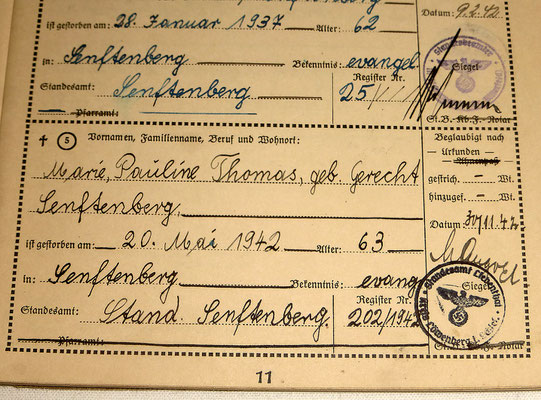 ist gestorben am: 28. Januar 1937 Alter: 62
Datum: 9.2.42
in: Senftenberg Bekenntnis: evangel
Siegel
Standesamt: Senftenberg Register Nr. 25
Pfarramt:
St.B. Kb.F. Notar
† 5 Vornamen, Familienname, Beruf und Wohnort:
Beglaubigt nach
Marie, Pauline Thomas, geb. Gerecht
— Urkunden —
Ahnenpaß
gestrich. — Wt.
Senftenberg,
hinzugef. — Wt.
ist gestorben am: 20. Mai 1942 Alter: 63
Datum 30/11.42
in: Senftenberg Bekenntnis: evang
Siegel
Standesamt: Stand. Senftenberg. Register Nr. 202/194
Standesamt Liebenthal
Kreis Löwenberg i. Schles.
Pfarramt:
Kb.F. Notar
11